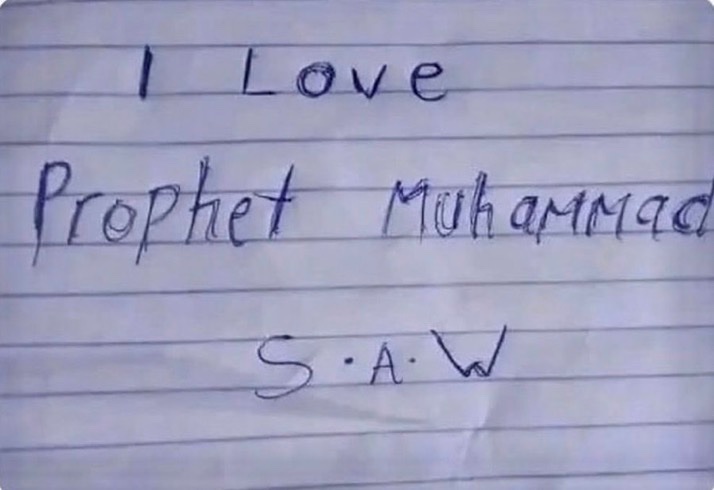 I Love
Prophet Muhammad
S.A.W